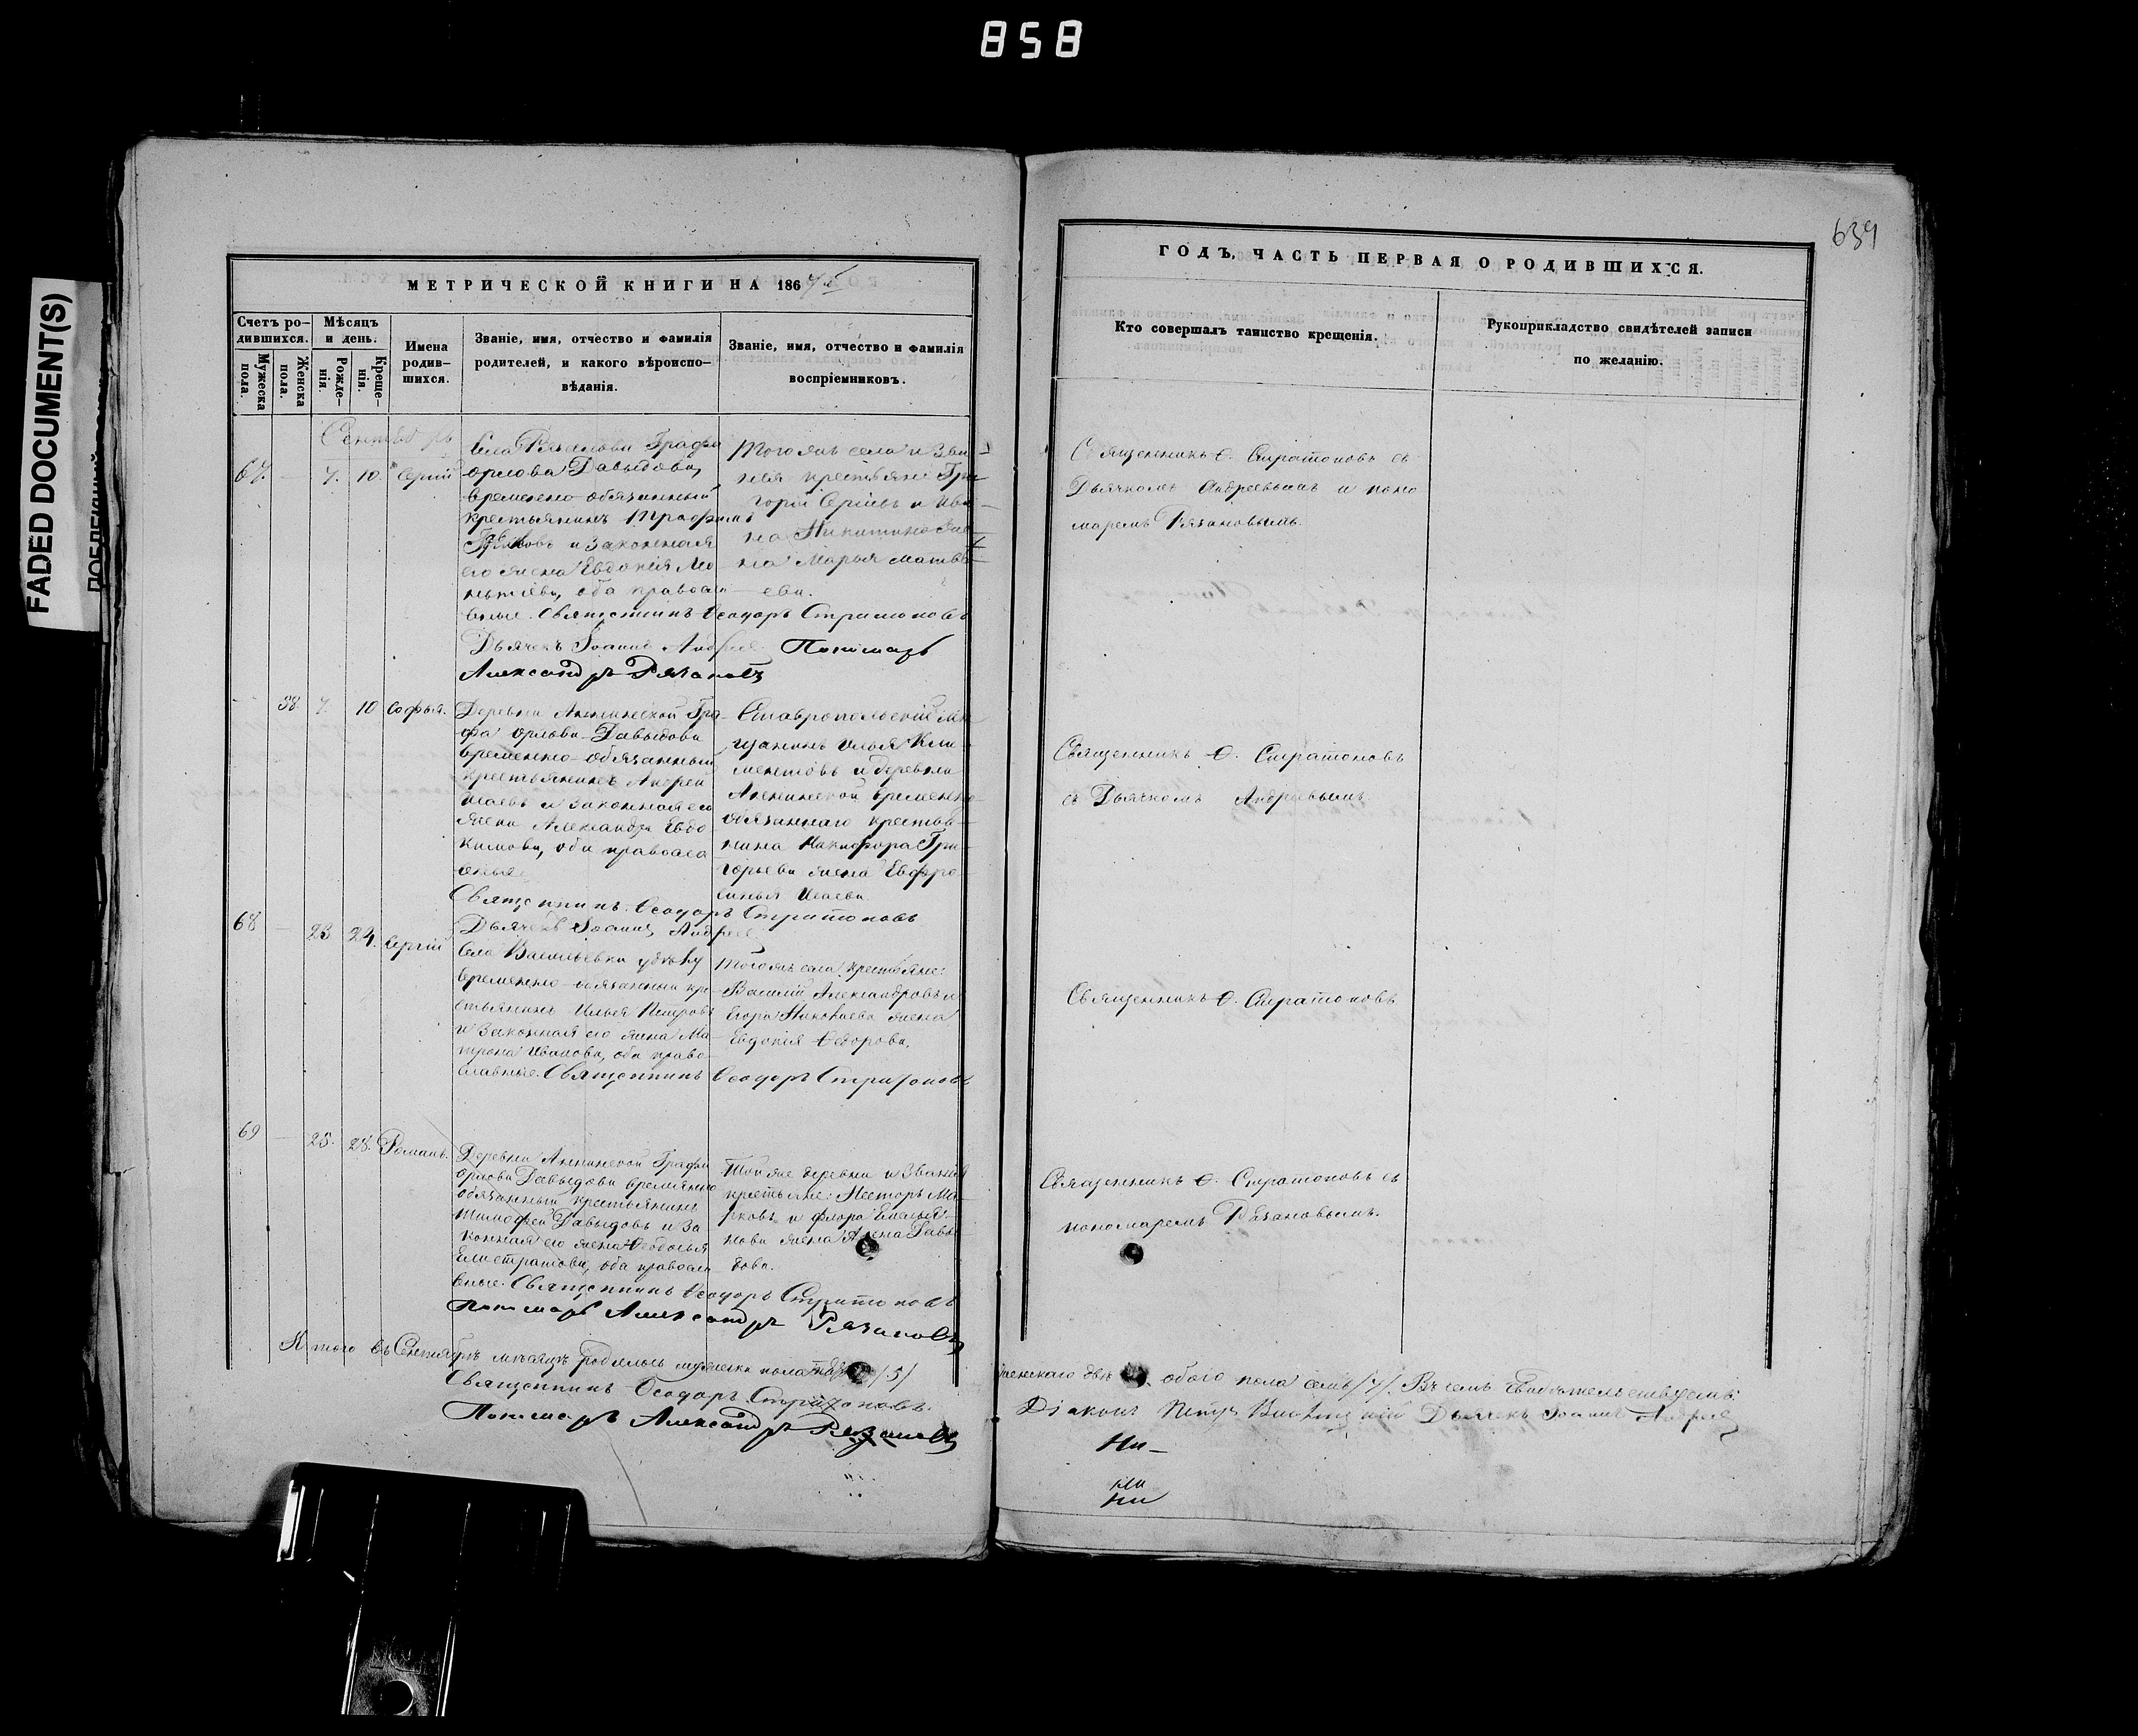 858
FADED DOCUMENT(S)
639
МЕТРИЧЕСКОЙ КНИГИ НА 186
Счетъ ро-
дившихся.
Мужеска
пола.
Женска
пола.
Мѣсяцъ
и день.
Рожде-
нія.
Креще-
нія.
Имена
родив-
шихся.
Званіе, имя, отчество и фамилія
родителей, и какого вѣроиспо-
вѣданія.
Званіе, имя, отчество и фамилія
воспріемниковъ.
67. — 7. 10. Сергій
Села Графа
Орлова Давыдова,
временно-обязанный
крестьянинъ
и законная
его жена Евдокія
оба правосла
вные. Священникъ Ѳеодоръ Стратоновъ
Дьячекъ Іоаннъ Пономарь
Александръ Рязановъ
Тогоже села и зва
нія крестьяне Гри
горій Сергіевъ и Ива
на Никитина же
на Марья Матвѣ
ева.
- 38. 7. 10 Софья.
Деревни Аннинской Гра-
фа Орлова-Давыдова
временно-обязанный
крестьянинъ Андрей
Исаевъ и законная его
жена Александра Евдо
кимова, оба правосла
вные.
Священникъ Ѳеодоръ Стратоновъ
Дьячекъ Іоаннъ
Ставропольскій Мѣ
щанинъ Илья Кли
ментовъ и деревни
Аннинской временно
обязаннаго крестья
нина Никифора Гри-
горьева жена Евфро
синья Исаева.
68 — 23 24. Сергій
Села Васильевки
временно-обязанный кре
стьянинъ Илья Петровъ
и законная его жена Ма-
трона Иванова, оба право-
славные. Священникъ Ѳеодоръ Стратоновъ
Тогоже села крестьяне:
Василій Александровъ и
Егора Николаева жена
Евдокія Ѳедорова.
69 — 25. 28. Романъ.
Деревни Аннинской Графа
Орлова Давыдова временно
обязанный крестьянинъ
Тимофей Давыдовъ и за
конная его жена Ѳеодосья
Елистратова, оба правосла
вные. Священникъ Ѳеодоръ Стратоновъ
Пономарь Александръ Рязановъ
Той же деревни и званія
крестьяне: Несторъ Ма-
рковъ и Флора Емелья-
нова жена Давы
дова.
Итого въ Сентябрѣ мѣсяцѣ родилось мужеска пола /5/
Священникъ Ѳеодоръ Стратоновъ.
Пономарь Александръ Рязановъ
ГОДЪ, ЧАСТЬ ПЕРВАЯ О РОДИВШИХСЯ.
Кто совершалъ таинство крещенія.
Рукоприкладство свидѣтелей записи
по желанію.
Священникъ Ѳ. Стратоновъ съ
Дьячкомъ Андреевымъ и поно
маремъ Рязановымъ.
Священникъ Ѳ. Стратоновъ
съ Дьячкомъ Андреевымъ
Священникъ Ѳ. Стратоновъ
Священникъ Ѳ. Стратоновъ съ
пономаремъ Рязановымъ.
женскаго обоего пола семь /7/. Въ чемъ свидѣтельствуемъ:
Діаконъ Петръ Дьячекъ Іоаннъ